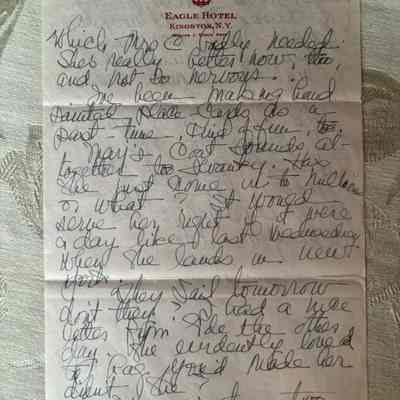 EAGLE HOTEL
KINGSTON, N.Y.
which Mrs C badly needed.
She's really better now, too,
and not so nervous.
I've been making hand
painted place cards as a
past time. Kind of fun, too.
Mary's coat sounds al-
together too swanky. Has
she just come in to millions
or what? It would
serve her right if it were
a day like last Wednesday
when she lands in New
York. They sail tomorrow
don't they? I had a nice
letter from Ide the other
day. She evidently loved
the bag you'd made her
didn't she?